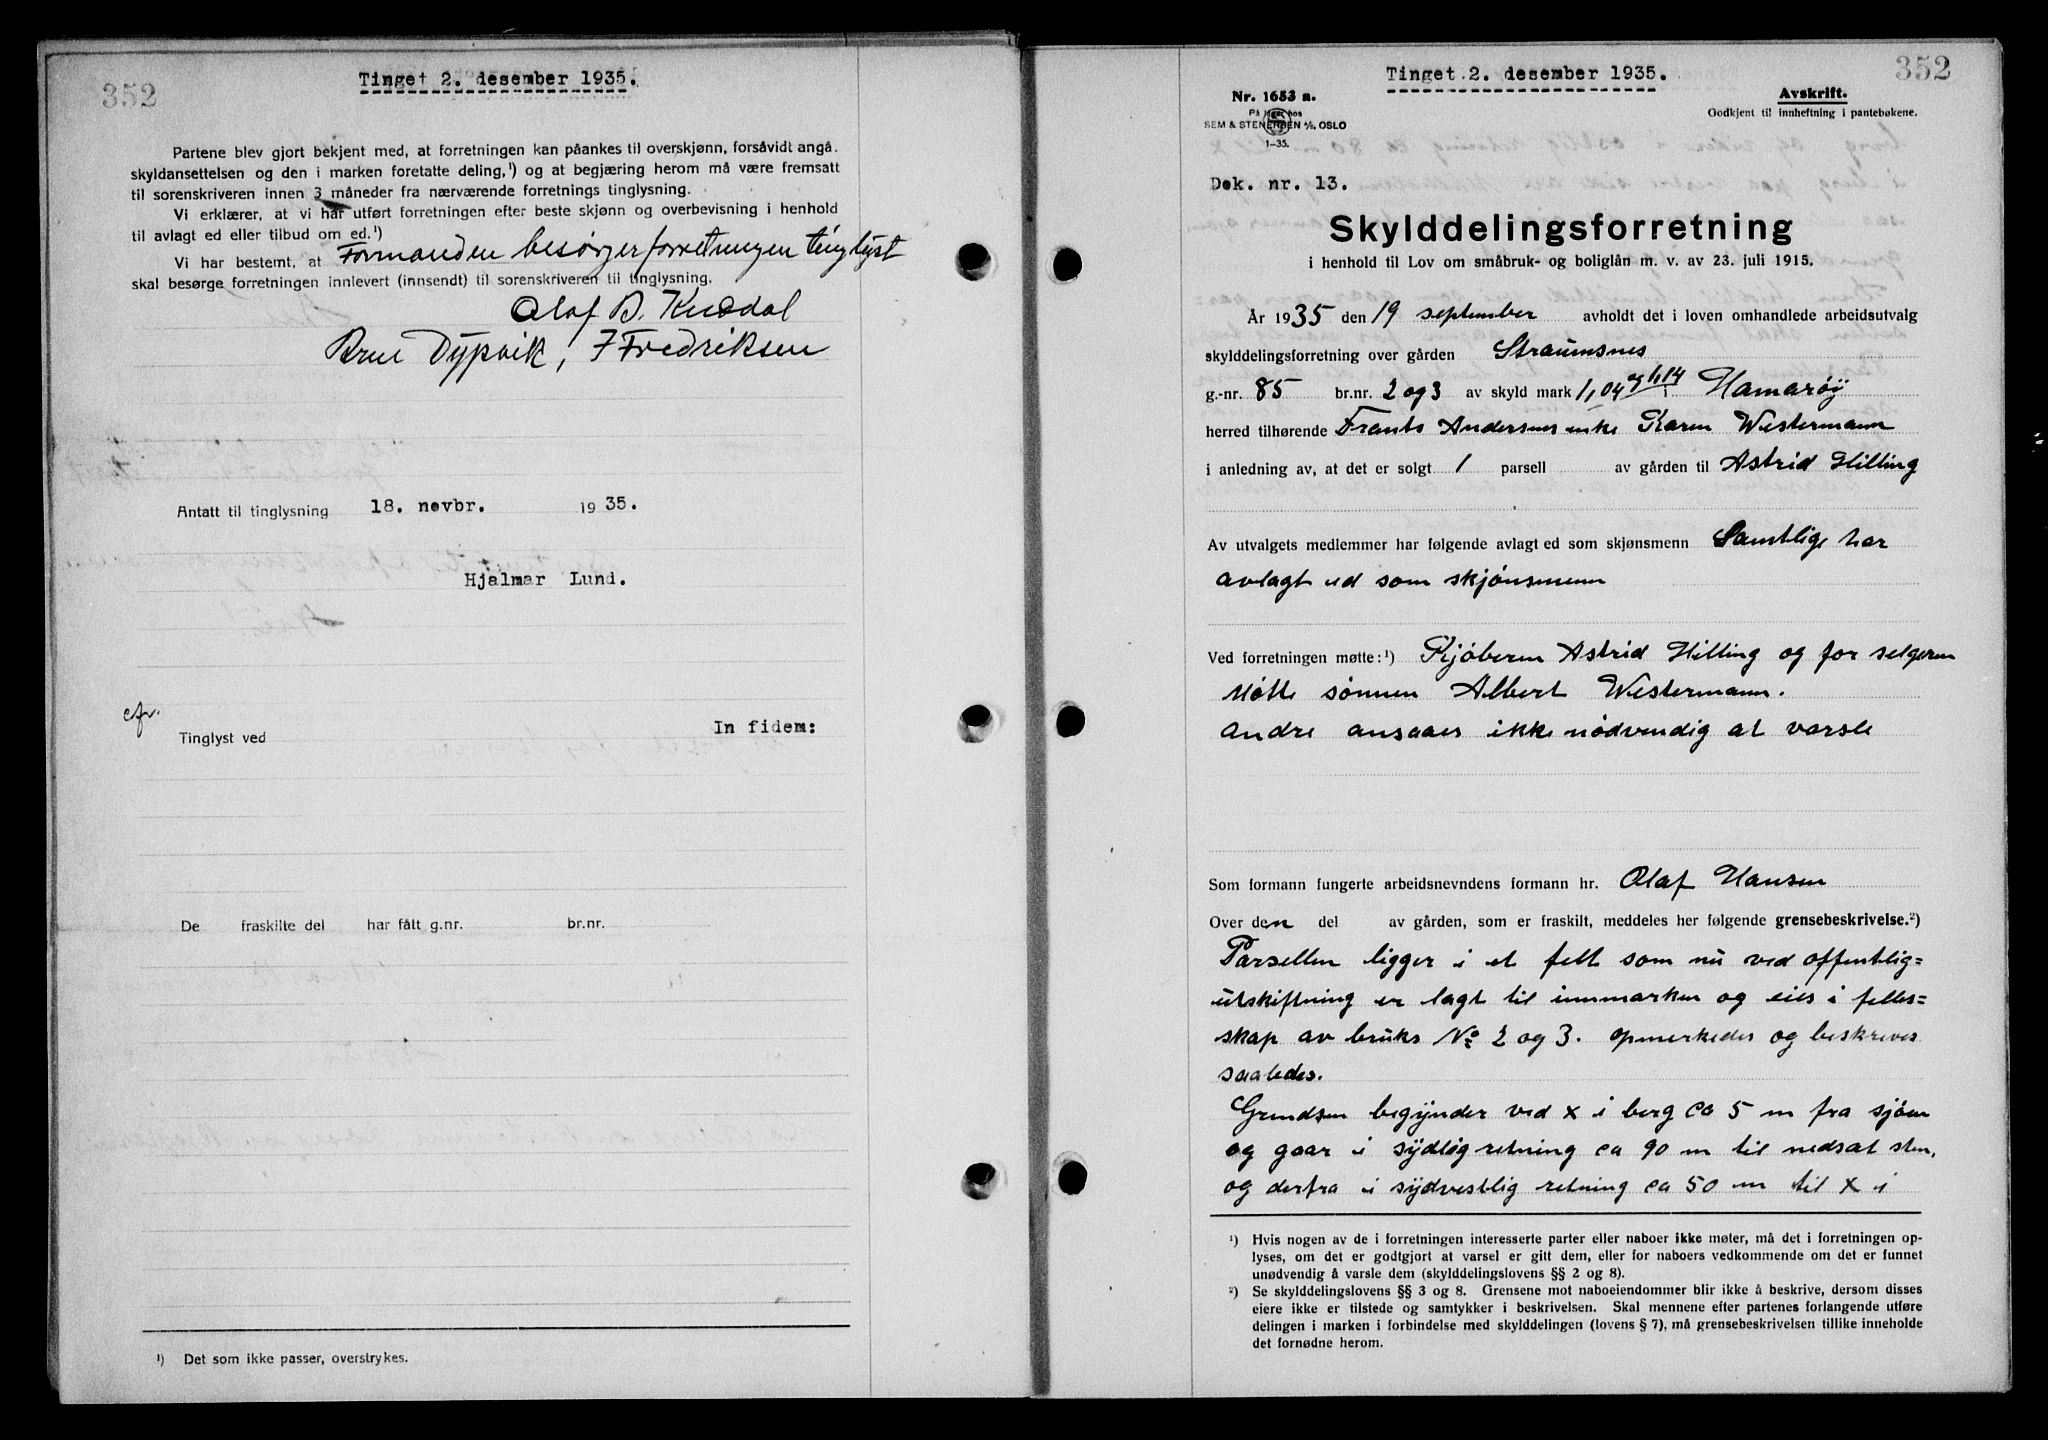 352
Tinget 2. desember 1935.
Partene blev gjort bekjent med, at forretningen kan påankes til overskjønn, forsåvidt angå.
skyldansettelsen og den i marken foretatte deling,¹) og at begjæring herom må være fremsatt
til sorenskriveren innen 3 måneder fra nærværende forretnings tinglysning.
Vi erklærer, at vi har utført forretningen efter beste skjønn og overbevisning i henhold
til avlagt ed eller tilbud om ed.¹)
Vi har bestemt, at Formanden besørger forretningen tinglyst
skal besørge forretningen innlevert (innsendt) til sorenskriveren til tinglysning.
Olaf B.
Dypvik, J Fredriksen
Antatt til tinglysning 18. novbr. 1935.
Hjalmar Lund.
cfr.
Tinglyst ved In fidem:
De fraskilte del har fått g.nr. br.nr.
¹) Det som ikke passer, overstrykes.
352
Tinget 2. desember 1935.
Nr. 1653 a.
På lager hos
SEM & STENERSEN A/S, OSLO
1-35.
Avskrift.
Godkjent til innheftning i pantebøkene.
Dok. nr. 13.
Skylddelingsforretning
i henhold til Lov om småbruk- og boliglån m. v. av 23. juli 1915.
År 1935 den 19 september avholdt det i loven omhandlede arbeidsutvalg
skylddelingsforretning over gården Straumsnes
g.-nr. 85 br.nr. 2 og 3 av skyld mark 1,04 og 1,14 Hamarøy
herred tilhørende Frants Andersens enke Karen Westermann
i anledning av, at det er solgt 1 parsell av gården til Astrid Hilling
Av utvalgets medlemmer har følgende avlagt ed som skjønsmenn Samtlige har
avlagt ed som skjønsmenn
Ved forretningen møtte:¹) Kjøberen Astrid Hilling og for selgeren
møtte sønnen Albert Westermann.
Andre ansaaes ikke nødvendig at varsle
Som formann fungerte arbeidsnevndens formann hr. Olaf Hansen
Over den del av gården, som er fraskilt, meddeles her følgende grensebeskrivelse.²)
Parsellen ligger i et felt som nu ved offentlig=
utskiftning er lagt til innmarken og eies i felles=
skap av bruks No 2 og 3. opmerkedes og beskreves
saaledes.
Grendsen begynder ved x i berg ca 5 m fra sjøen
og gaar i sydlig retning ca 90 m til nedsat sten,
og derfra i sydvestlig retning ca 50 m til x i
¹) Hvis nogen av de i forretningen interesserte parter eller naboer ikke møter, må det i forretningen op-
lyses, om det er godtgjort at varsel er gitt dem, eller for naboers vedkommende om det er funnet
unødvendig å varsle dem (skylddelingslovens §§ 2 og 8).
²) Se skylddelingslovens §§ 3 og 8. Grensene mot naboeiendommer blir ikke å beskrive, dersom disses
eiere ikke er tilstede og samtykker i beskrivelsen. Skal mennene efter partenes forlangende utføre
delingen i marken i forbindelse med skylddelingen (lovens § 7), må grensebeskrivelsen tillike inneholde
det fornødne herom.